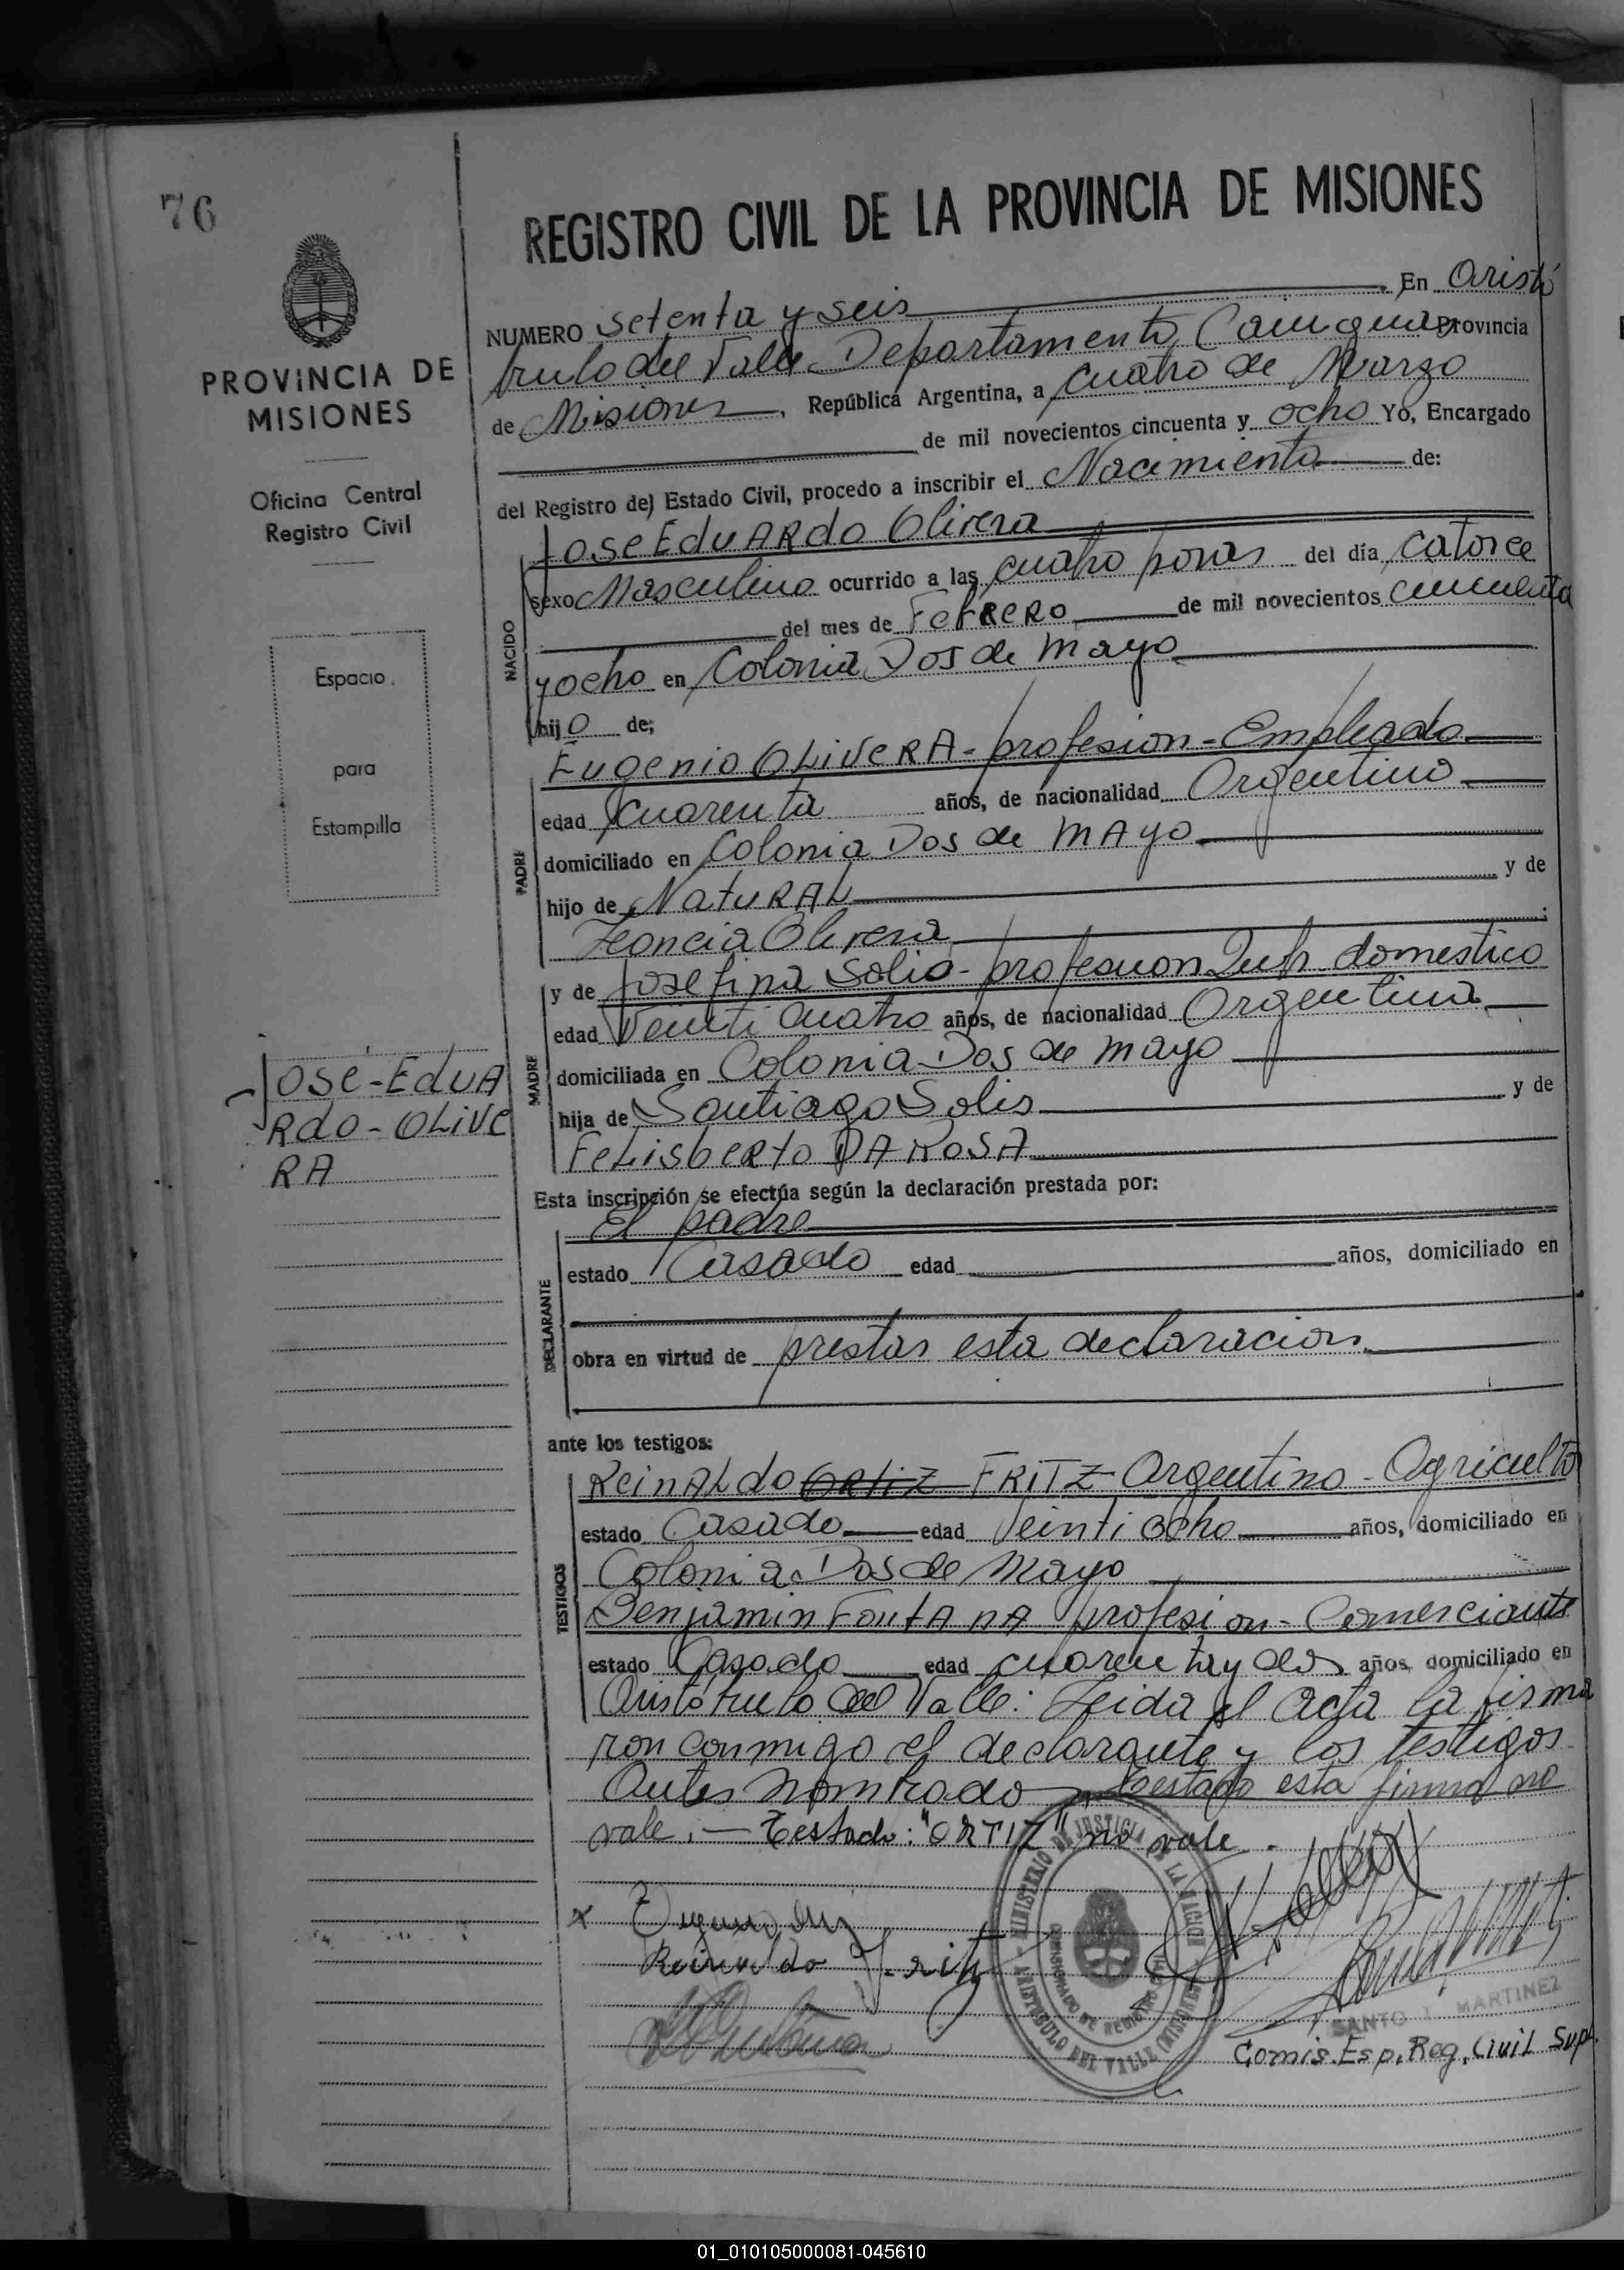 76
REGISTRO CIVIL DE LA PROVINCIA DE MISIONES
PROVINCIA DE
MISIONES
Oficina Central
Registro Civil
Espacio
para
Estampilla
JOSE-EDUA
RDO-OLIVE
RA
NUMERO setenta y seis En Aristó
bulo del Valle Departamento Cainguas Provincia
de Misiones, República Argentina, a cuatro de Marzo
de mil novecientos cincuenta y ocho Yo, Encargado
del Registro del Estado Civil, procedo a inscribir el Nacimiento de:
NACIDO
Jose EduARdo Olivera
sexo Masculino ocurrido a las cuatro horas del día catorce
del mes de FebRERO de mil novecientos cincuenta
y ocho en Colonia Dos de Mayo
hijo de;
PADRE
Eugenio OLiVeRA - profesion - Empleado
edad Cuarenta años, de nacionalidad Argentino
domiciliado en Colonia Dos de MAyo
hijo de NatuRAL y de
Leoncia Olivera
MADRE
y de Josefina Solis - profesion Queh. domestico
edad Veinti cuatro años, de nacionalidad Argentina
domiciliada en Colonia Dos de Mayo
hija de Santiago Solis y de
FeLisbeRto DA ROSA
Esta inscripción se efectúa según la declaración prestada por:
DECLARANTE
El padre
estado Casado edad años, domiciliado en
obra en virtud de prestar esta declaracion
ante los testigos:
TESTIGOS
ReinALdo ORtiZ FRITZ Argentino - Agriculto
estado Casado edad Veinti ocho años, domiciliado en
Colonia Dos de Mayo
Benjamin FontAnA profesion - Comerciante
estado Casado edad cuarenta y dos años, domiciliado en
Aristóbulo del Valle: Leida el Acta la firma
ron conmigo el declarante y los testigos
Antes Nombrado Testado esta firma no
vale. — Testado: "ORTIZ" no vale.
MINISTERIO DE JUSTICIA DE LA NACION
ARISTOBULO DEL VALLE (MISIONES)
x Eugenio
Reinaldo Fritz
SANTO T. MARTINEZ
Comis. Esp. Reg. Civil Supl.
01_010105000081-045610